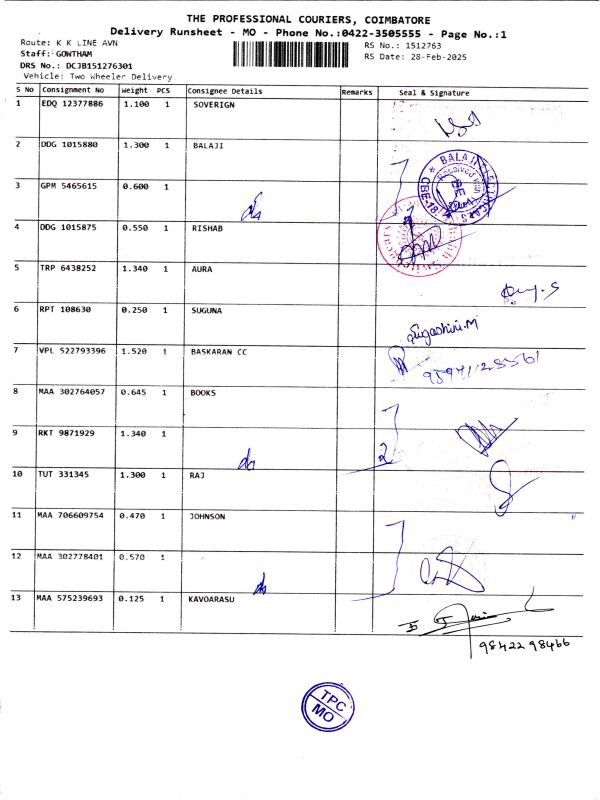 THE PROFESSIONAL COURIERS, COIMBATORE
Delivery Runsheet - MO - Phone No.:0422-3505555 - Page No.:1
Route: K K LINE AVN
RS No.: 1512763
Staff: GOWTHAM
RS Date: 28-Feb-2025
DRS No.: DCJB151276301
Vehicle: Two Wheeler Delivery
S No Consignment No Weight PCS Consignee Details Remarks Seal & Signature
1 EDQ 12377886 1.100 1 SOVERIGN
2 DDG 1015880 1.300 1 BALAJI
3 GPM 5465615 0.600 1 do
4 DDG 1015875 0.550 1 RISHAB
5 TRP 6438252 1.340 1 AURA
6 RPT 108630 0.250 1 SUGUNA
Sugashini.M
7 VPL 522793396 1.520 1 BASKARAN CC
8 MAA 302764057 0.645 1 BOOKS
9 RKT 9871929 1.340 1 do 2
10 TUT 331345 1.300 1 RAJ
11 MAA 706609754 0.470 1 JOHNSON
12 MAA 302778401 0.570 1 do
13 MAA 575239693 0.125 1 KAVOARASU
98422 98466
BALAJI
CBE-18
Received
TPC
MO